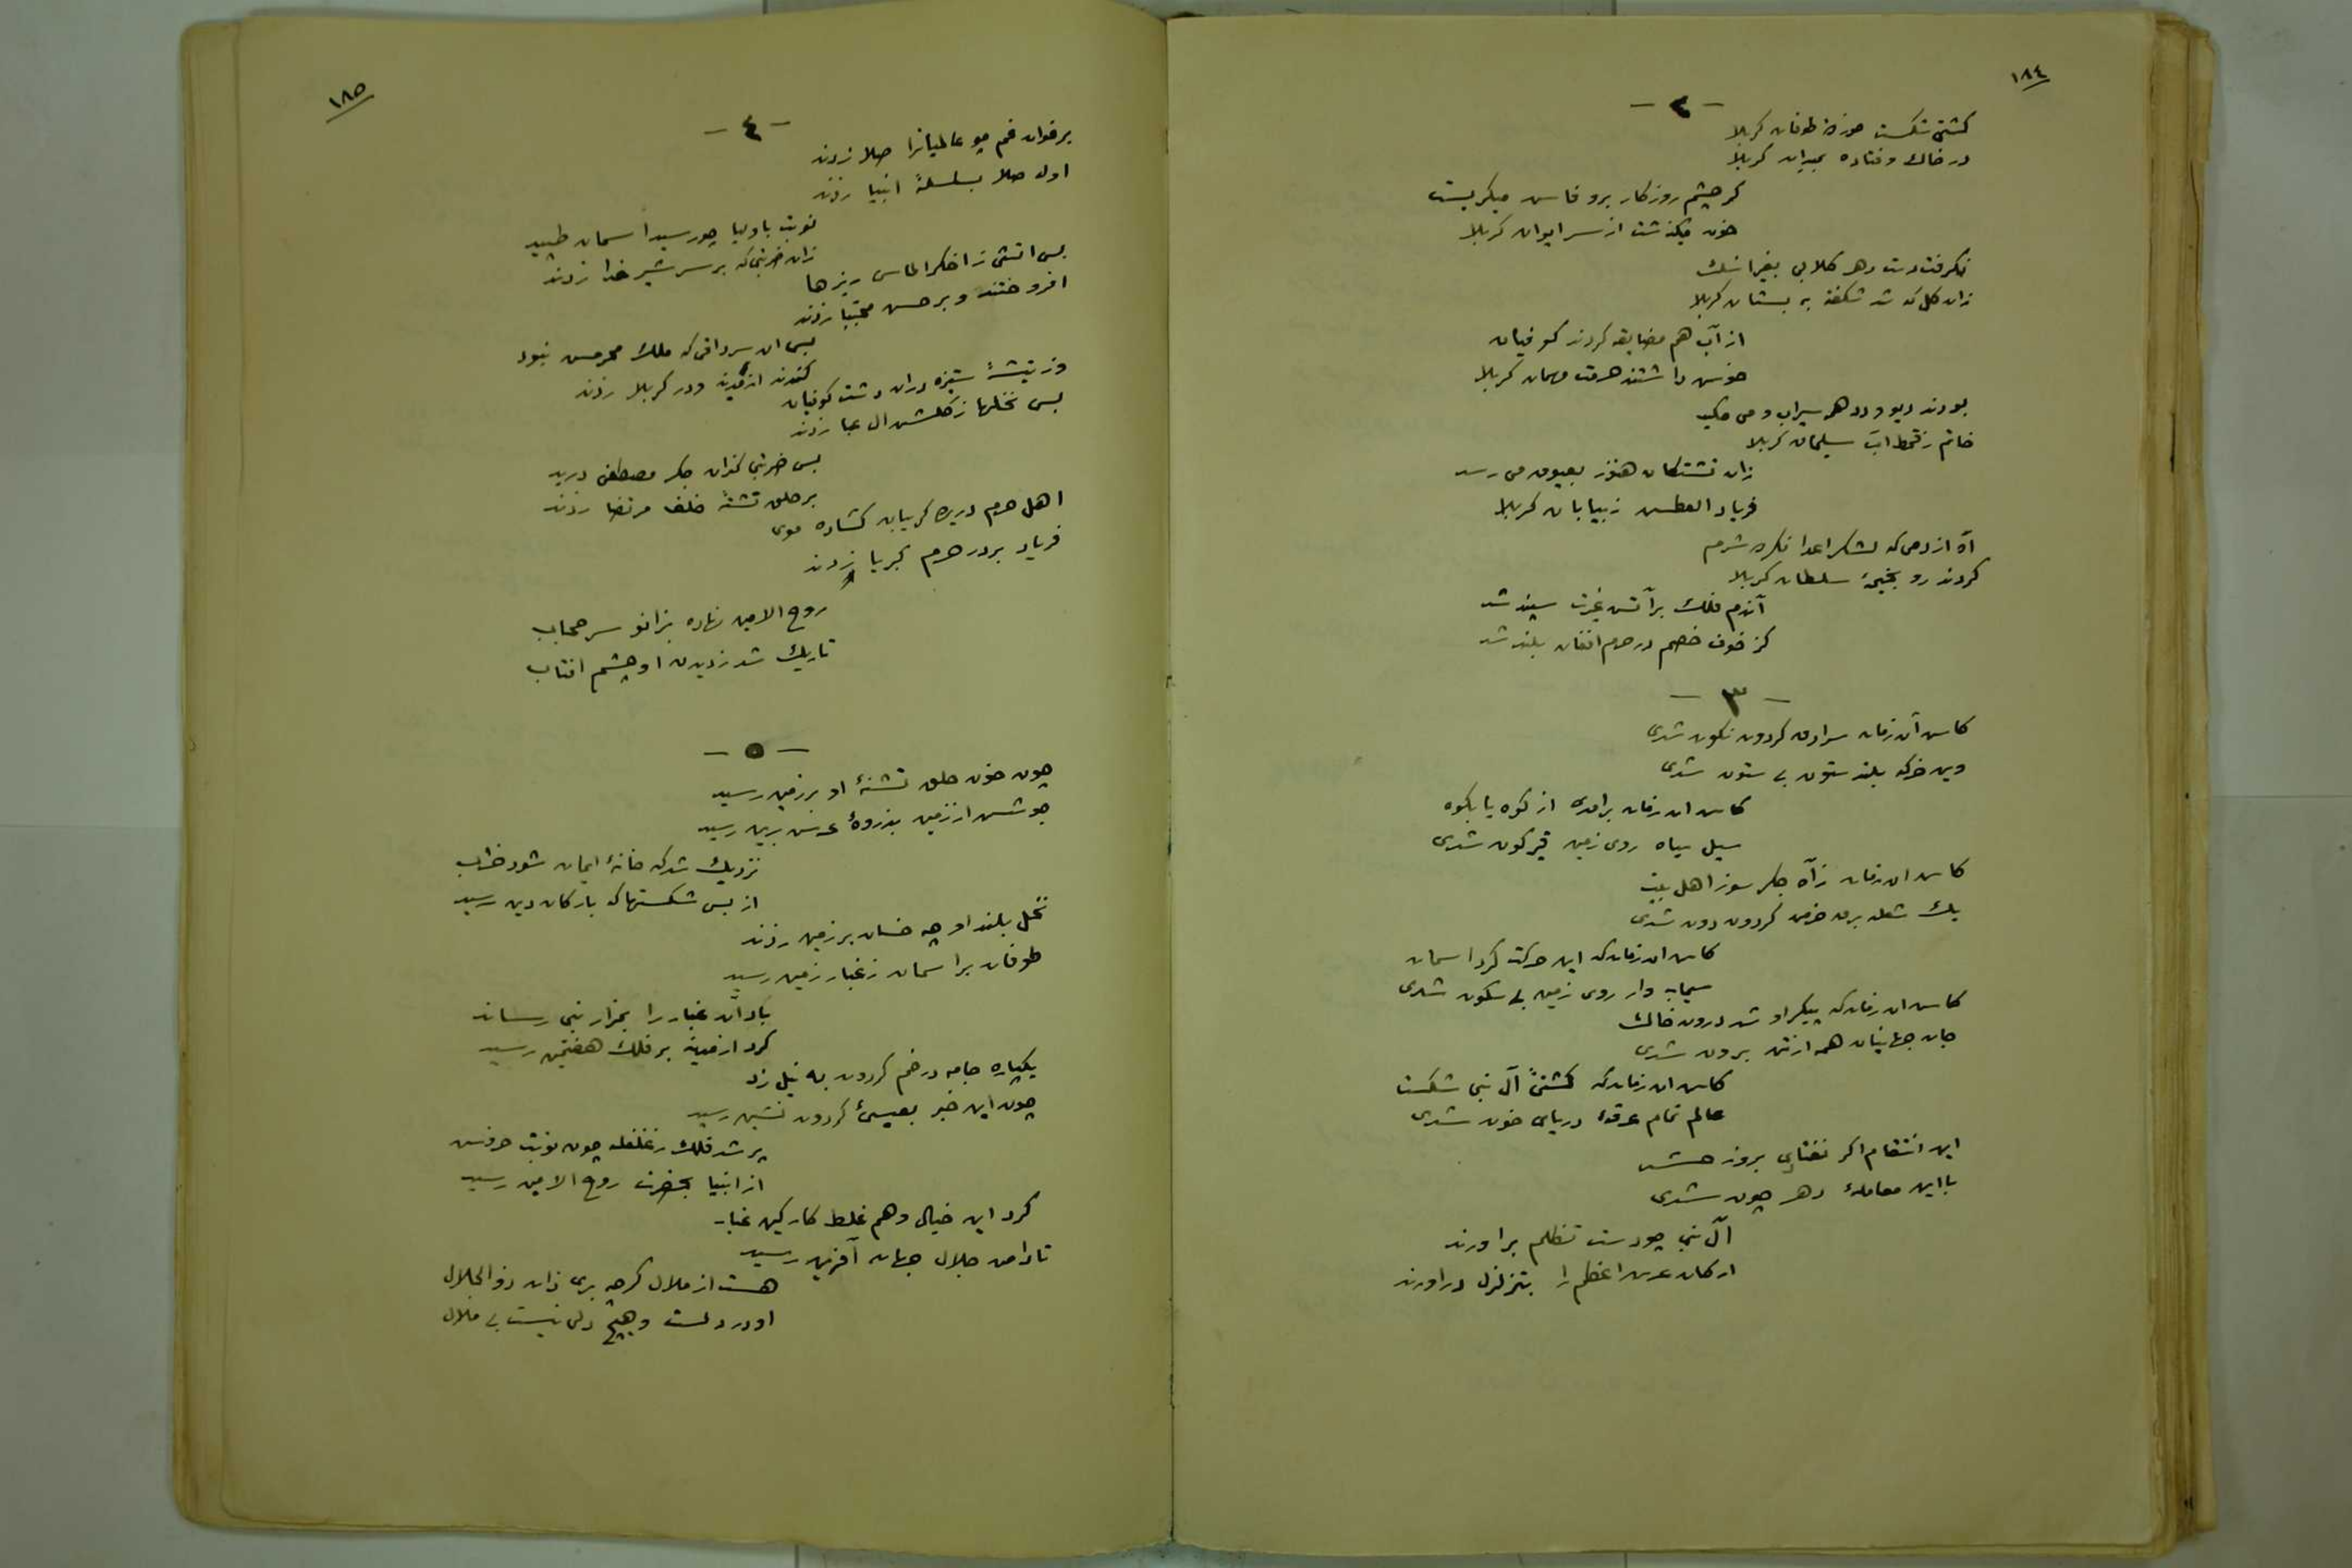 ١٨٤
- ٢ -
كشتی شكست خوردۀ طوفان كربلا
در خاك وفتاده بميدان كربلا
كر چشم روزكار برو فاش ميكريست
خون ميكذشت از سر ايوان كربلا
نكرفت دست دهر كلابی بغير اشك
زان كل كه شد شكفته به بستان كربلا
از آب هم مضايقه كردند كوفيان
خوش داشتند حرمت مهمان كربلا
بودند ديو ودد همه سيراب ومی مكيد
خاتم زقحط آب سليمان كربلا
زان تشنكان هنوز بعيوق می رسد
فرياد العطش زبيابان كربلا
آه از دمی كه لشكر اعدا نكرد شرم
كردند رو بخيمۀ سلطان كربلا
آندم فلك برآتش غيرت سپند شد
كز خوف خصم در حرم افغان بلند شد
- ٣ -
كاش آن زمان سرادق كردون نكون شدی
وين خركه بلند ستون بی ستون شدی
كاش ان زمان برامدی از كوه يا بكوه
سيل سياه روی زمين قيركون شدی
كاش ان زمان زآه جكر سوز اهل بيت
يك شعله برق خرمن كردون دون شدی
كاش ان زمان كه اين حركت كرد اسمان
سيماب وار روی زمين بی سكون شدی
كاش ان زمان كه پيكر او شد درون خاك
جان جهانيان همه از تن برون شدی
كاش ان زمان كه كشتیٔ آل نبی شكست
عالم تمام غرقۀ دريای خون شدی
اين انتقام اكر نفتادی بروز حشر
بااين معاملۀ دهر چون شدی
آل نبی چو دست تظلم براورند
اركان عرش اعظم را بتزلزل دراورند
١٨٥
- ٤ -
برخوان غم چو عالميانرا صلا زدند
اول صلا بسلسلۀ انبيا زدند
نوبت باوليا چو رسيد اسمان طپيد
زان ضربتی كه بر سر شير خدا زدند
بس اتشی ز اخكر الماس ريزها
افروختند وبر حسن مجتبا زدند
بس ان سرادقی كه ملك محرمش نبود
كندند از مدينه ودر كربلا زدند
وز تيشۀ ستيزه دران دشت كوفيان
بس نخلها زكلشن ال عبا زدند
بس ضربتی كزان جكر مصطفی دريد
بر حلق تشنۀ خلف مرتضا زدند
اهل حرم دريده كريبان كشاده موی
فرياد بر در حرم كبريا زدند
روح الامين نهاده بزانو سر حجاب
تاريك شد زديدن او چشم افتاب
- ٥ -
چون خون حلق تشنۀ او برزمين رسيد
جوشش از زمين بذروۀ عرش برين رسيد
نزديك شد كه خانۀ ايمان شود خراب
از بس شكستها كه باركان دين رسيد
نخل بلند او چه خسان بر زمين زدند
طوفان براسمان زغبار زمين رسيد
باد آن غبار را بمزار نبی رساند
كرد از مدينه بر فلك هفتمين رسيد
يكباره جامه در خم كردون به نيل زد
چون اين خبر بعيسیٔ كردون نشين رسيد
پر شد فلك زغلغله چون نوبت خروش
از انبيا بحضرت روح الامين رسيد
كرد اين خيال وهم غلط كار كين غبار
تا دامن جلال جهان آفرين رسيد
هست از ملال كرچه بری ذات ذو الجلال
او در دلست وهيچ دلی نيست بی ملال